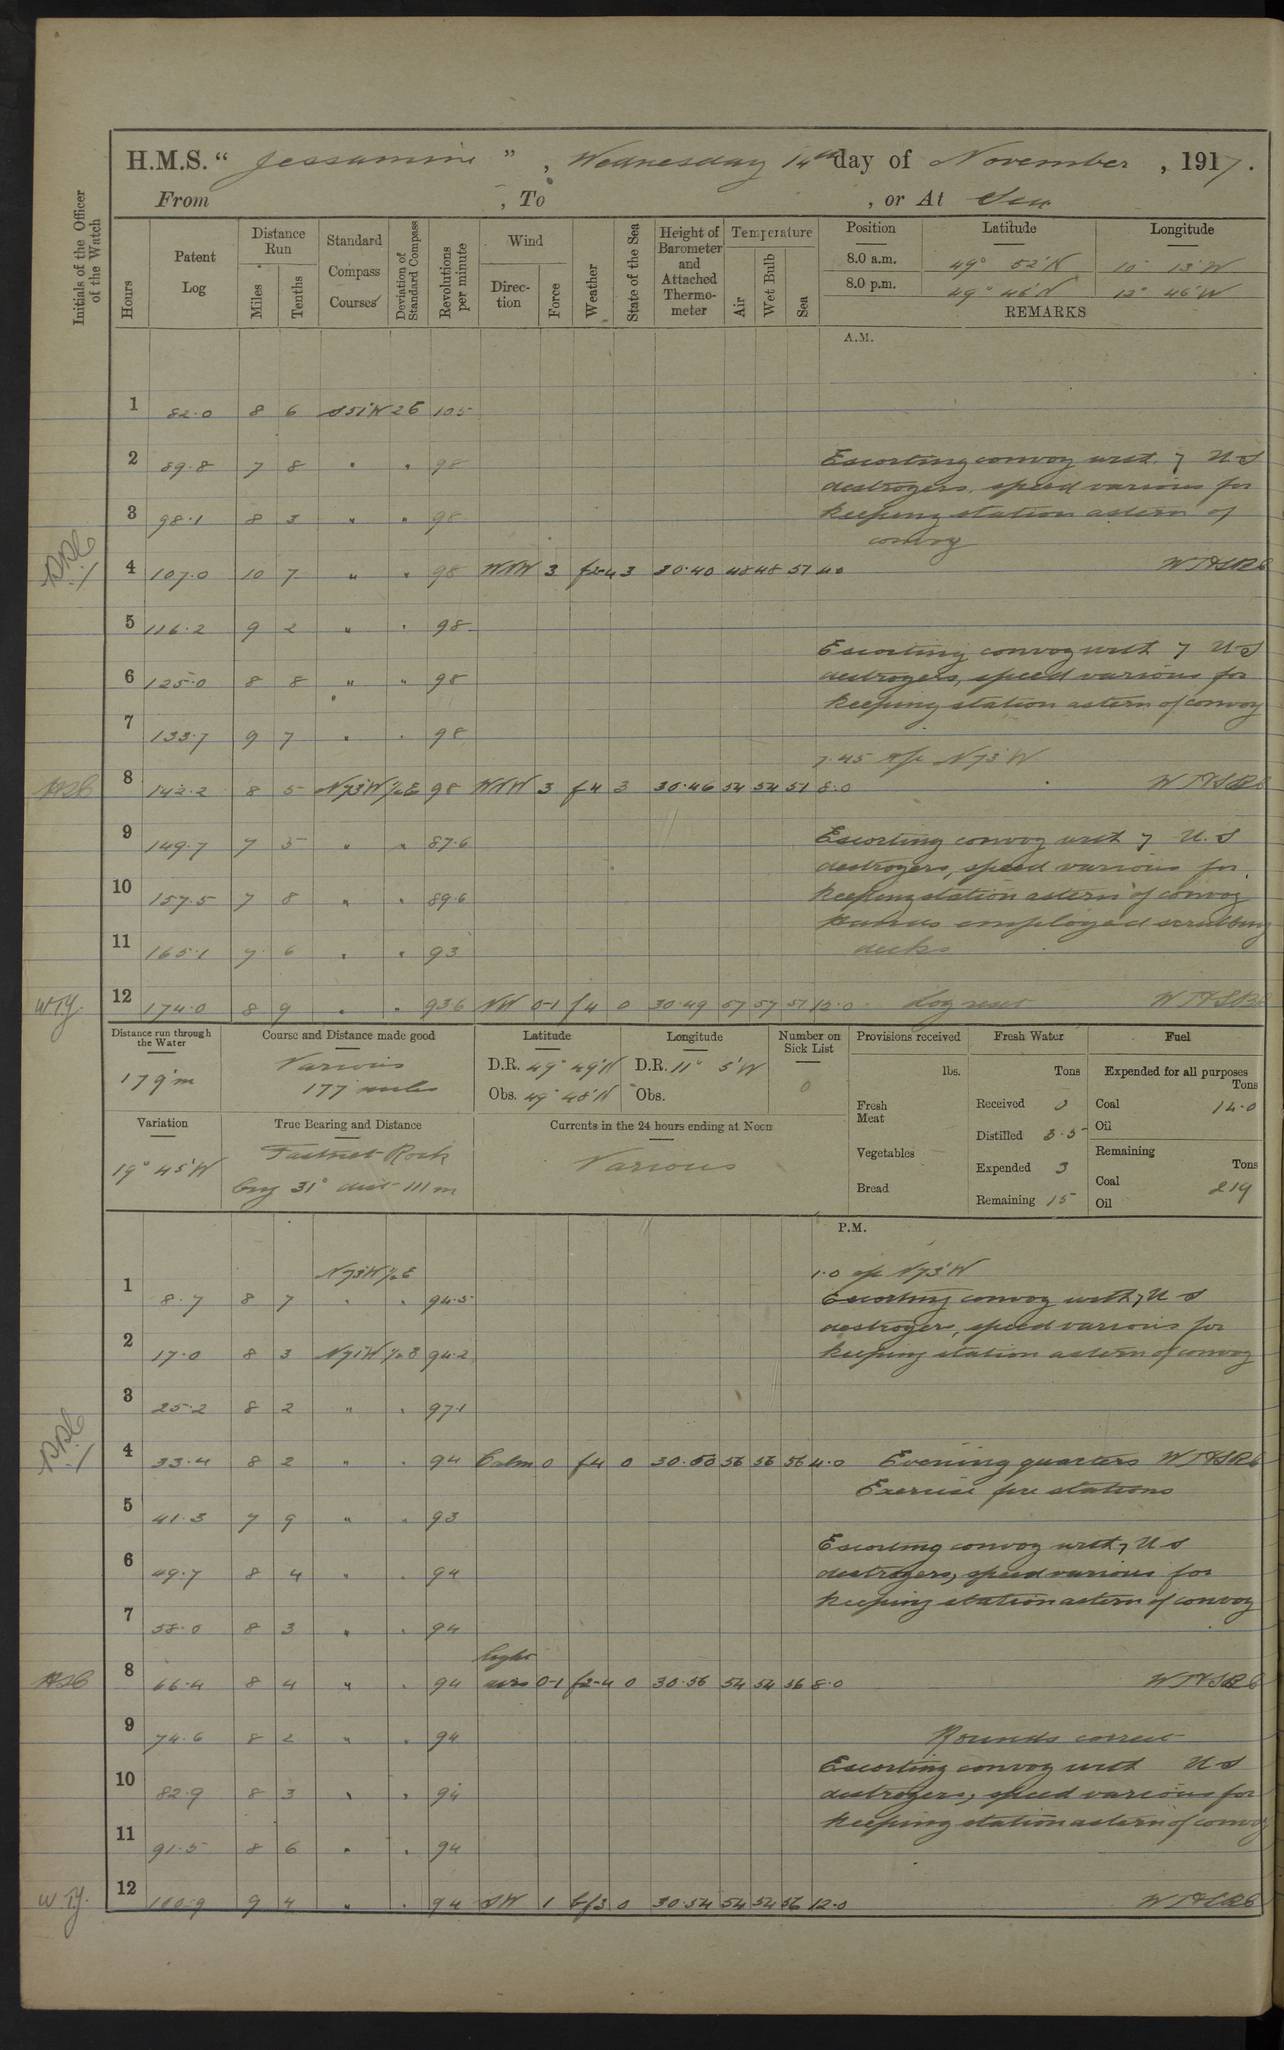 H.M.S. “ Jessamine ” , Wednesday 14th day of November , 1917.
From , To , or At Sea
Initials of the Officer of the Watch
Hours
Patent Log
Distance Run
Miles
Tenths
Standard Compass Courses
Deviation of Standard Compass
Revolutions per minute
Wind
Direction
Force
Weather
State of the Sea
Height of Barometer and Attached Thermometer
Temperature
Air
Wet Bulb
Sea
Position Latitude Longitude
8.0 a.m. 49° 52'N 10° 13'W
8.0 p.m. 49° 46'N 12° 46'W
REMARKS
A.M.
1 82.0 8 6 S51W 2E 105
2 89.8 7 8 " " 98 Escorting convoy with 7 U.S
destroyers, speed various for
3 98.1 8 3 " " 98 keeping station astern of
convoy
4 107.0 10 7 " " 98 WNW 3 3 30.40 48 48 51 4.0
5 116.2 9 2 " " 98
Escorting convoy with 7 U.S
6 125.0 8 8 " " 98 destroyers, speed various for
keeping station astern of convoy
7 133.7 9 7 " " 98
7.45 a/c N73W
8 142.2 8 5 N73W ½E 98 WNW 3 f4 3 30.46 54 54 51 8.0
9 149.7 7 5 " " 87.6 Escorting convoy with 7 U.S
destroyers, speed various for
10 157.5 7 8 " " 89.6 keeping station astern of convoy
Hands employed scrubbing
11 165.1 7 6 " " 93 decks
WTY. 12 174.0 8 9 " " 93.6 NW 0-1 f4 0 30.49 57 57 51 12.0 Log reset
Distance run through the Water
179'm
Course and Distance made good
Various
177 miles
Latitude
D.R. 49° 49'N
Obs. 49° 48'N
Longitude
D.R. 11° 5'W
Obs.
Number on Sick List
0
Provisions received
lbs.
Fresh Meat
Vegetables
Bread
Fresh Water
Tons
Received 0
Distilled 3.5
Expended 3
Remaining 15
Fuel
Expended for all purposes
Tons
Coal 14.0
Oil
Remaining
Tons
Coal 219
Oil
Variation
19° 45'W
True Bearing and Distance
Fastnet Rock
brg 31° dist 111 m
Currents in the 24 hours ending at Noon
Various
P.M.
N73W ½E 1.0 a/c N73W
1 8.7 8 7 " " 94.5 Escorting convoy with 7 U S
destroyers, speed various for
2 17.0 8 3 N71W ½E 94.2 keeping station astern of convoy
3 25.2 8 2 " " 97.1
4 33.4 8 2 " " 94 Calm 0 f4 0 30.50 56 56 56 4.0 Evening quarters
Exercise fire stations
5 41.3 7 9 " " 93
Escorting convoy with 7 U S
6 49.7 8 4 " " 94 destroyers, speed various for
keeping station astern of convoy
7 58.0 8 3 " " 94
8 66.4 8 4 " " 94 Light airs 0-1 f2-4 0 30.56 54 54 56 8.0
9 74.6 8 2 " " 94 Rounds correct
Escorting convoy with U S
10 82.9 8 3 " " 94 destroyers, speed various for
keeping station astern of convoy
11 91.5 8 6 " " 94
WTY. 12 100.9 9 4 " " 94 SW 1 bf3 0 30.54 54 54 56 12.0